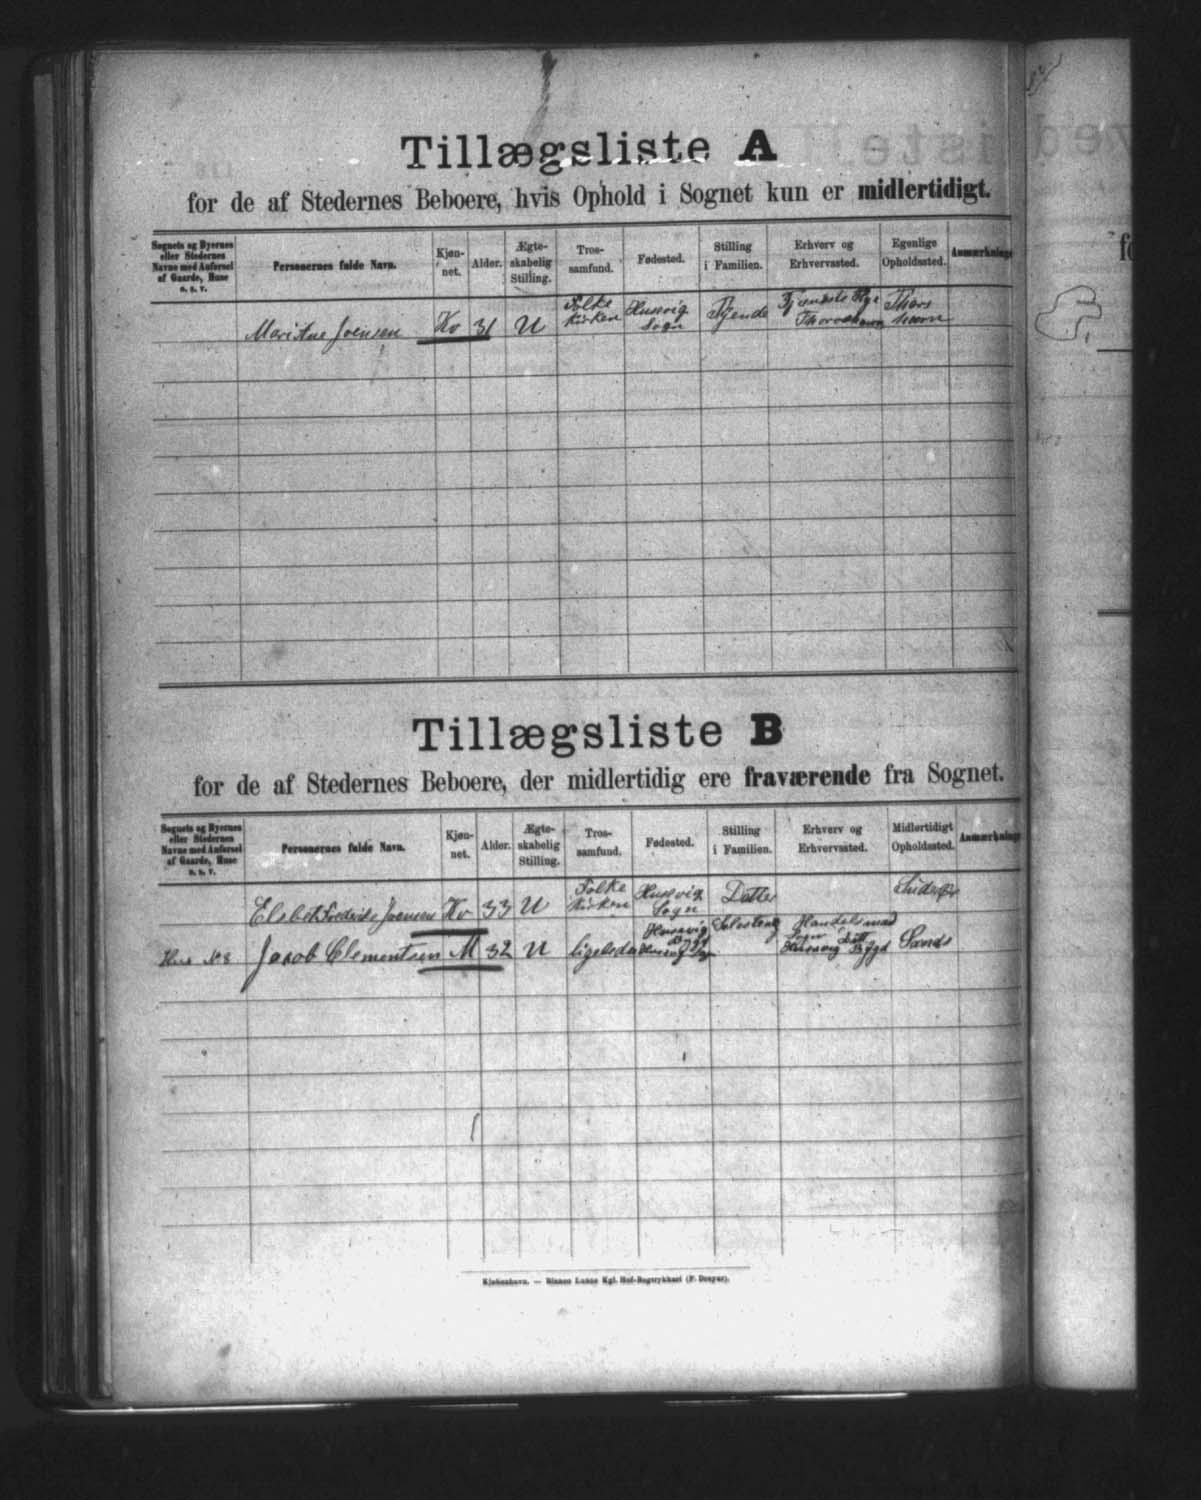 Tillægsliste A
for de af Stedernes Beboere, hvis Ophold i Sognet kun er midlertidigt.
Sognets og Byernes eller Stedernes Navne med Anførsel af Gaarde, Huse o. s. v. | Personernes fulde Navn. | Kjøn- net. | Alder. | Ægte- skabelig Stilling. | Tros- samfund. | Fødested. | Stilling i Familien. | Erhverv og Erhvervssted. | Egenlige Opholdssted. | Anmærkninger
Mari Ane Joensen | Kv | 31 | U | Folke Kirken | Husevig Sogn | Tjende | Tjeneste Thorshavn | Thors havn
Tillægsliste B
for de af Stedernes Beboere, der midlertidig ere fraværende fra Sognet.
Sognets og Byernes eller Stedernes Navne med Anførsel af Gaarde, Huse o. s. v. | Personernes fulde Navn. | Kjøn- net. | Alder. | Ægte- skabelig Stilling. | Tros- samfund. | Fødested. | Stilling i Familien. | Erhverv og Erhvervssted. | Midlertidigt Opholdssted. | Anmærkninger
Elsbet Frederikke Joensen | Kv | 33 | U | Folke Kirken | Husevig Sogn | Datter | Suderø
Hus No 8 | Jacob Clementsen | M | 32 | U | ligeledes | Husevig Bygd Husevig Sogn | Selvstendig | Handelsmand Sogn Husevig Bygd | Sands
Kjøbenhavn. — Bianco Lunos Kgl. Hof-Bogtrykkeri (F. Dreyer).